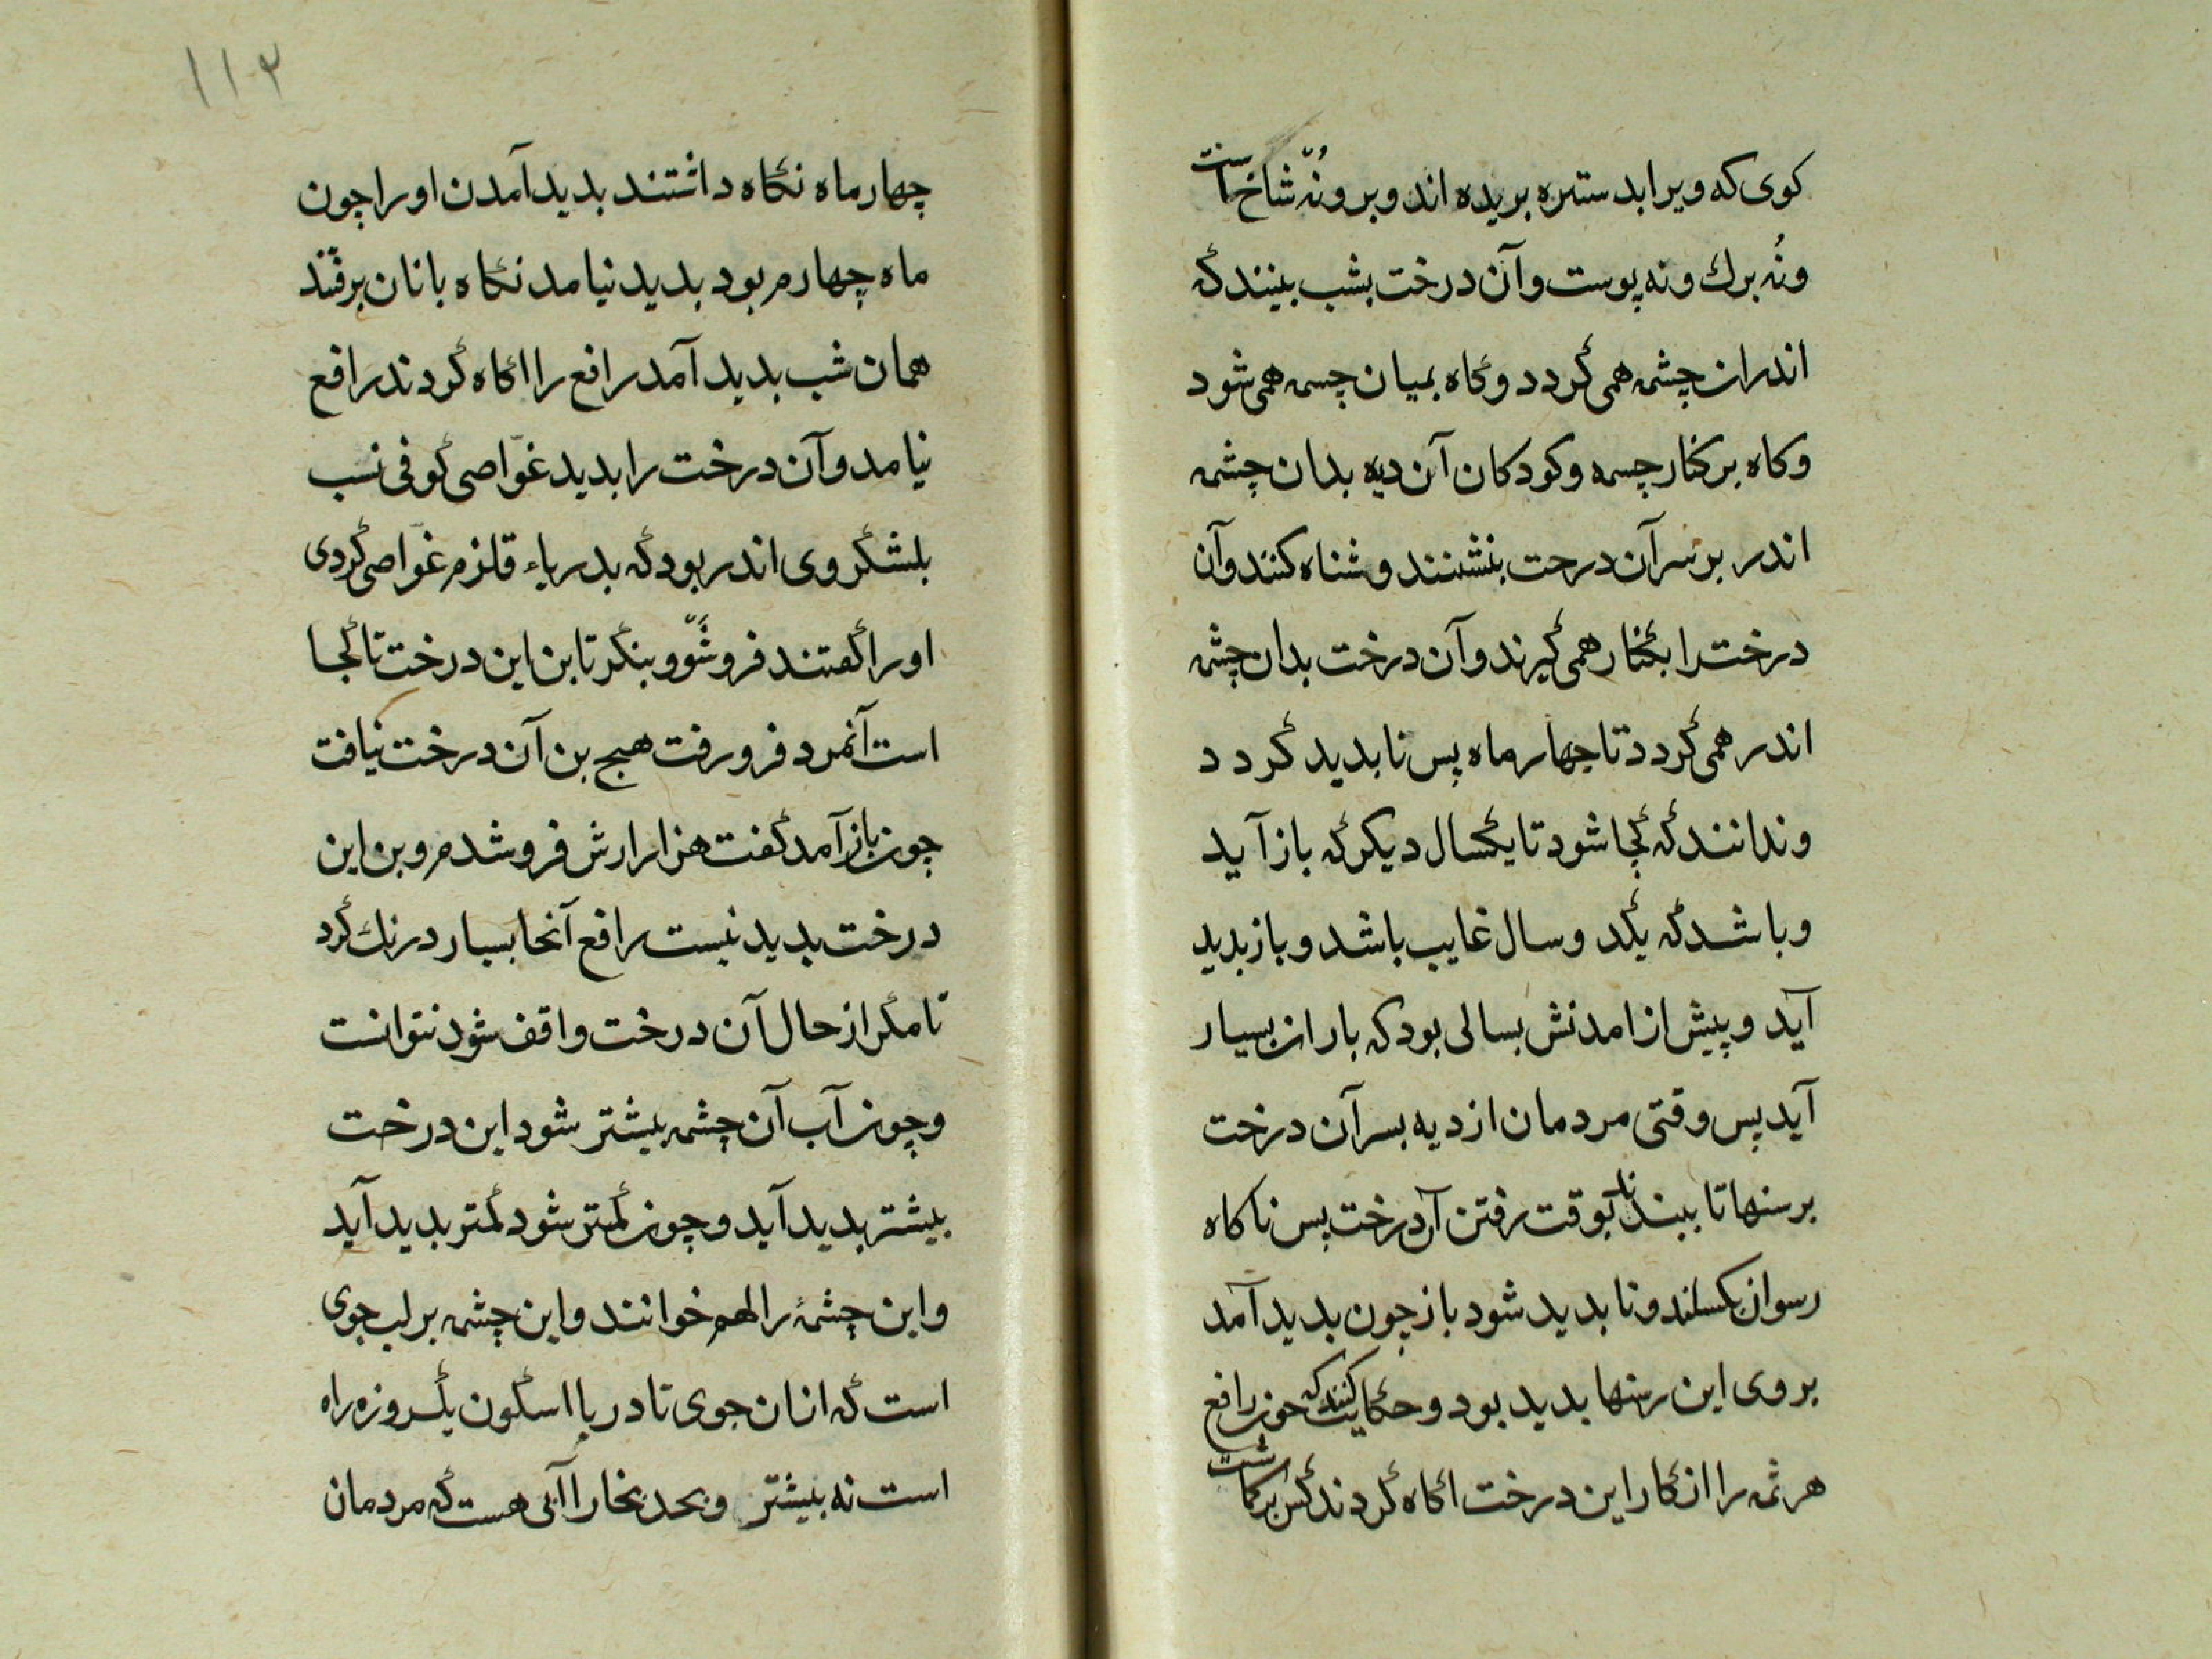 کوی که ویرا بدستره بریده اند و برو نه شاخ است
ونه برك ونه پوست وآن درخت بشب بینند که
اندران چشمه همی گردد وگاه بمیان چسمه همی شود
وکاه برکنار چسمه وکودکان آن دیه بدان چشمه
اندر بر سر آن درحت بنشنند وشناه کنند وآن
درخت را بکنار همی گیرند وآن درخت بدان چشمه
اندر همی گردد تا جهار ماه پس نابدید گردد
وندانند که کجا شود تا یکسال دیکر که باز آید
وباشد که یکد وسال غایب باشد وباز بدید
آید وپیش از امدنش بسالی بود که باران بسیار
آید پس وقتی مردمان از دیه بسر آن درخت
برسنها تا ببندند تا بوقت رفتن آن درخت پس ناکاه
رسوان بکسلند ونابدید شود باز چون بدید آمد
بر وی این رسنها بدید بود وحکایت کنند که جون رافع
هرثمه را از کار این درخت اکاه کردند کس برکماشت
۱۱۲
چهار ماه نکاه داشتند بدید آمدن او را چون
ماه چهارم بود بدید نیامد نکاه بانان برفتند
همان شب بدید آمد رافع را اکاه کردند رافع
نیامد وآن درخت را بدید غوّاصی کوفی نسب
بلشکر وی اندر بود که بدریاء قلزم غوّاصی کردی
او را کفتند فرو شو وبنکر تا بن این درخت تا کجا
است آنمرد فرو رفت هیج بن آن درخت نیافت
چون باز آمد کفت هزار ارش فرو شدم وبن این
درخت بدید نیست رافع آنجا بسیار درنك کرد
تا مکر از حال آن درخت واقف شود نتوانست
وچون آب آن چشمه بیشتر شود این درخت
بیشتر بدید آید وچون کمتر شود کمتر بدید آید
واین چشمهٔ را لهم خوانند واین چشمه بر لب جوی
است که ازان جوی تا دریا اسکون یکروزه راه
است نه بیشتر وبحد بخارا آبی هست که مردمان